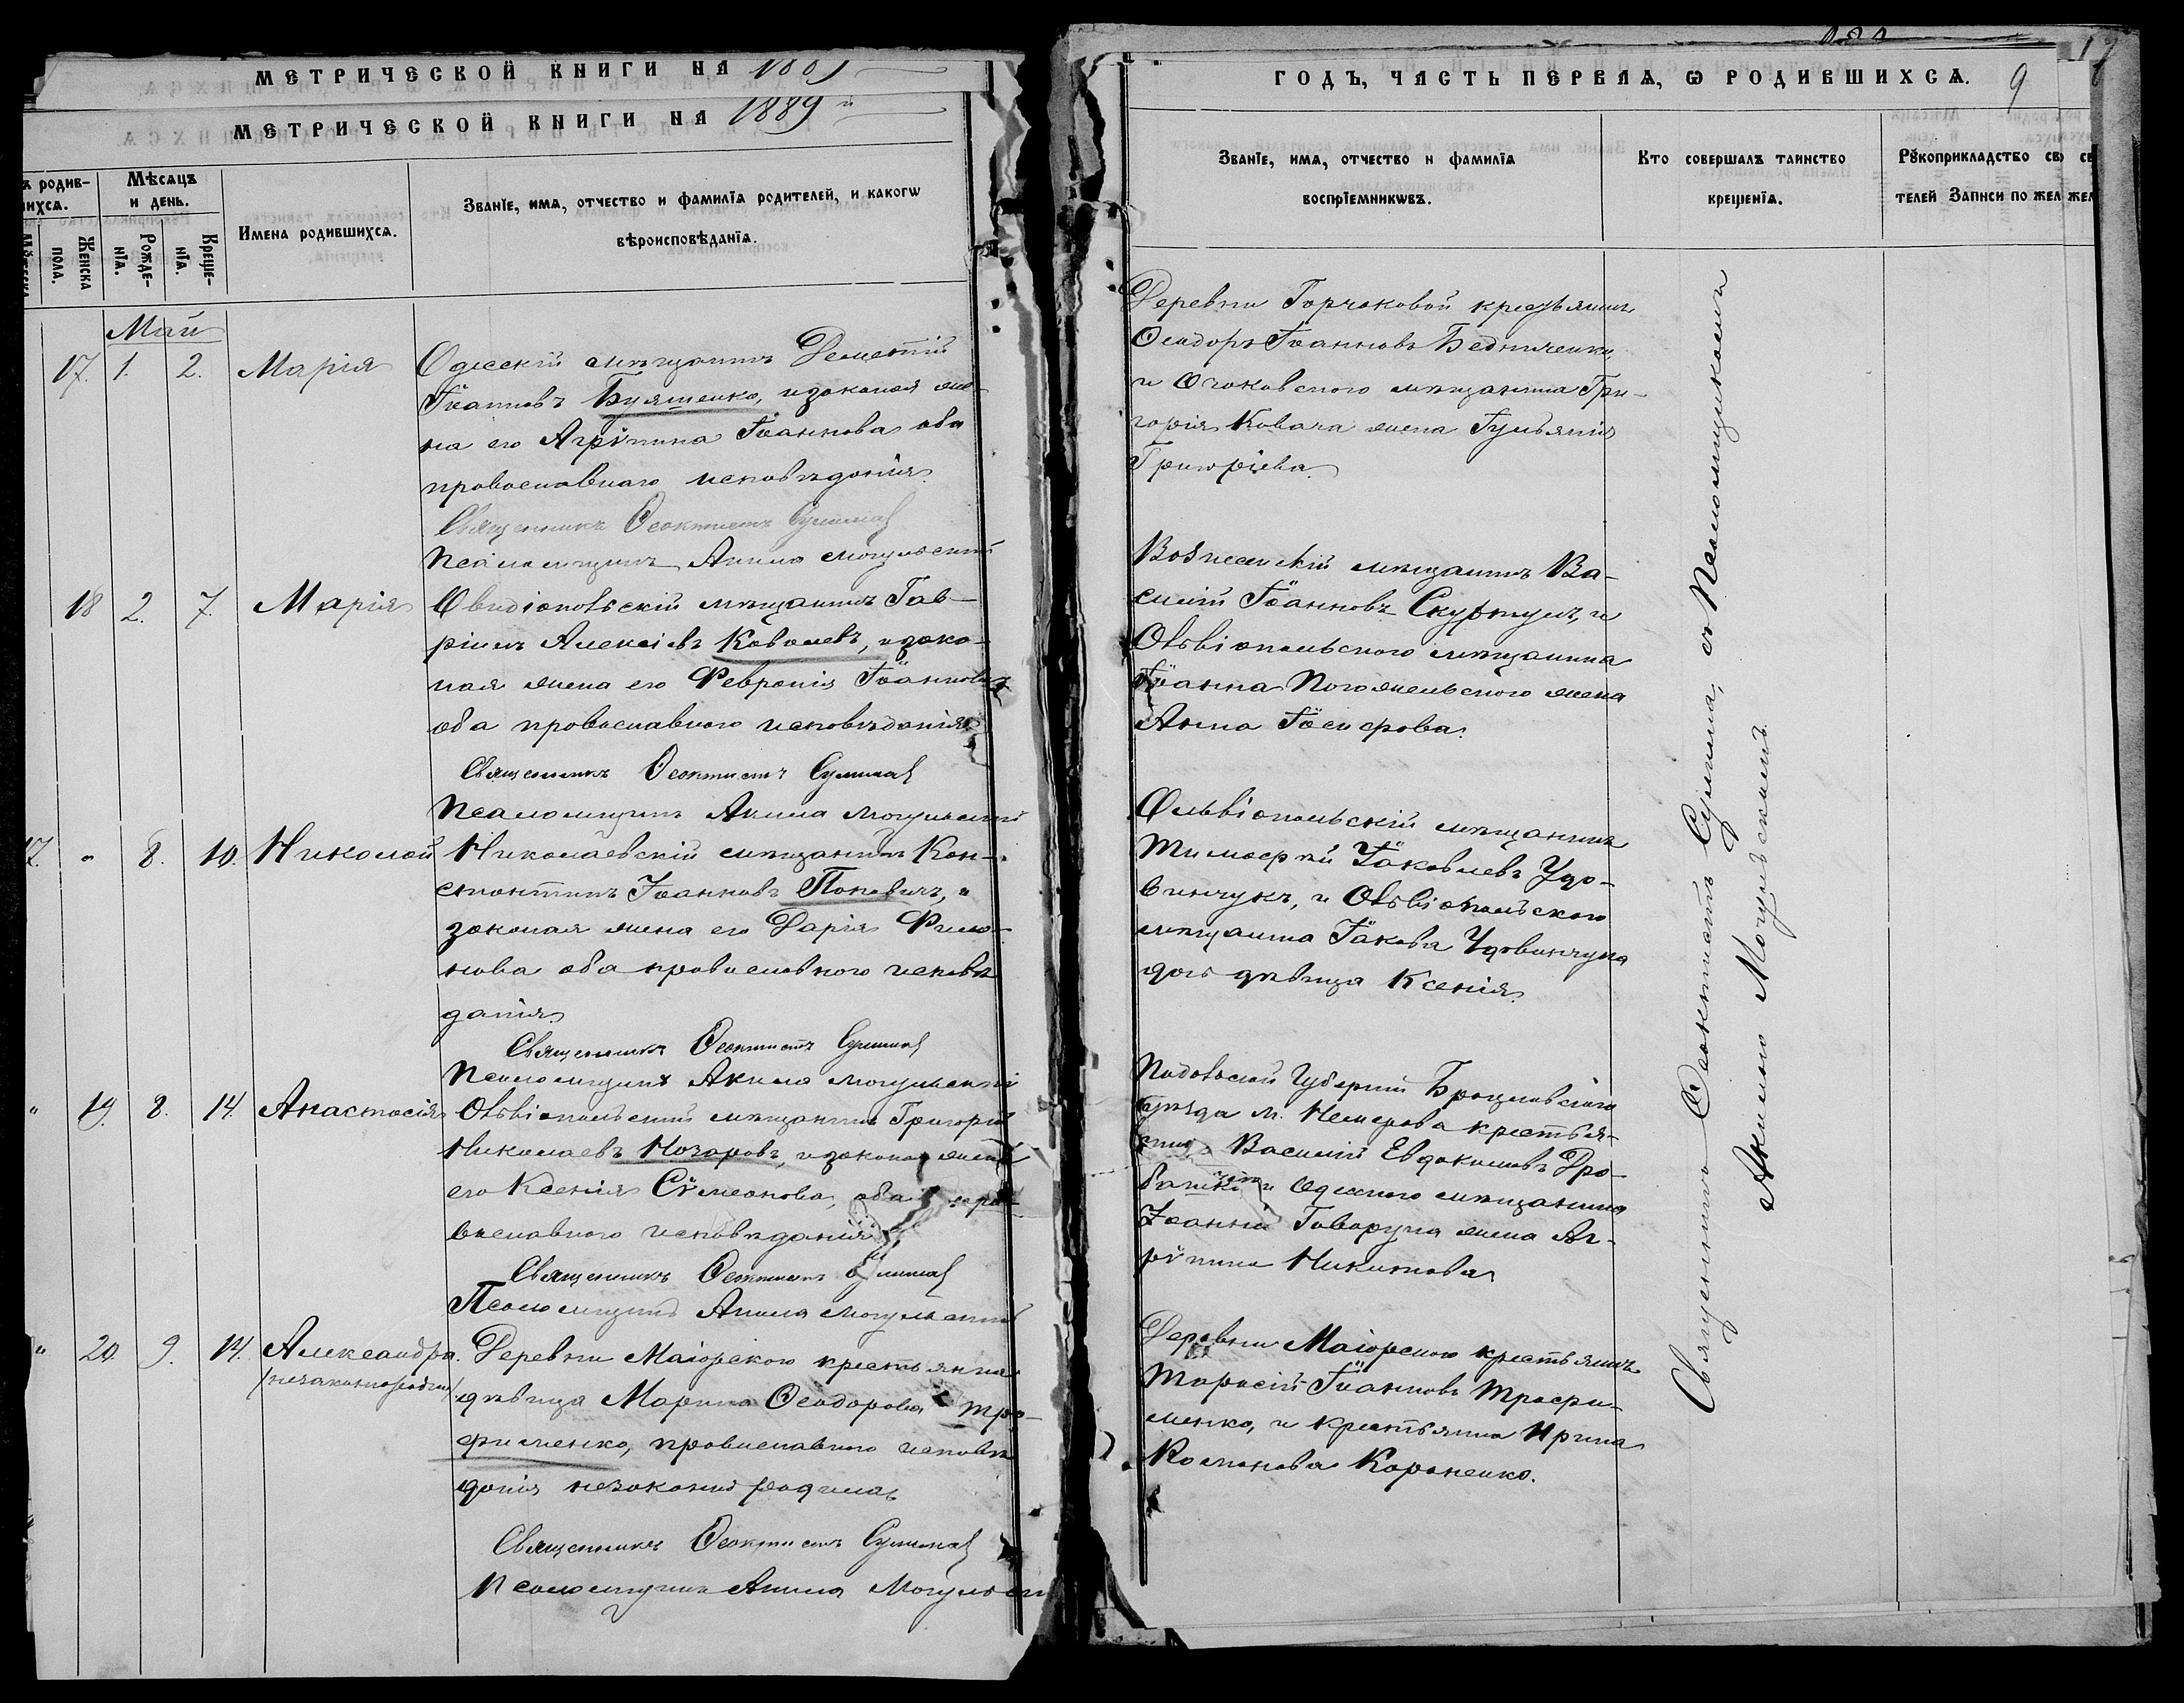 МЕТРИЧЕСКОЙ КНИГИ НА
МЕТРИЧЕСКОЙ КНИГИ НА 1889 й
родив-
шихся.
Мѣсяцъ
и день.
Женска
пола.
Рожде-
нїя.
Креще-
нїя.
Имена родившихся.
Званїе, имя, отчество и фамилїя родителей, и какогѡ
вѣроисповѣданїя.
Май
17. 1. 2. Марія
Одесскій мѣщанинъ Дементій
Іоанновъ Буяшенко, и законая же-
на его Агрѵпина Іоаннова оба
православнаго исповѣданія.
Священникъ Ѳеоктистъ Сулима
Псаломщикъ Акила Могульскій
18 2. 7. Марія
Овидіопольскій мѣщанинъ Гав-
ріилъ Алексіевъ Ковалевъ, и зако-
ная жена его Февронія Іоаннова
оба православнаго исповѣданія
Священникъ Ѳеоктистъ Сулима
Псаломщикъ Акила Могульскій
17. " 8. 10. Николай
Николаевскій мѣщанинъ Кон-
стантинъ Іоанновъ Поповичъ, и
законая жена его Дарія Фили-
нова оба православного исповѣ
данія.
Священникъ Ѳеоктистъ Сулима
Псаломщикъ Акила Могульскій
" 19. 8. 14. Анастасія
Ольвіопольскій мѣщанинъ Григорій
Николаевъ Назаровъ, и законая жена
его Ксенія Сѵмеонова, оба пра-
вославного исповѣданія
Священникъ Ѳеоктистъ Сулима
Псаломщикъ Акила Могульскій
" 20. 9. 14. Александра.
/незаконнорожден/
Деревни Маіорского крестьянка
дѣвица Марина Ѳеодорова Тро-
фименко, православного исповѣ
данія незаконно родила
Священникъ Ѳеоктистъ Сулима
Псаломщикъ Акила Могульскій
ГОДЪ, ЧАСТЬ ПЕРВАЯ, Ѡ РОДИВШИХСЯ. 9
Званїе, имя, отчество и фамилїя
воспрїемникѡвъ.
Кто совершалъ таинство
крещенїя.
Рꙋкоприкладство свѣ
телей Записи по жел
Деревни Горчаковой крестьянинъ
Ѳеодоръ Іоанновъ Бедниченко,
и Очаковского мѣщанина Гри-
горія Ковача жена Гульянія
Григоріева.
Вознесенскій мѣщанинъ Ва-
силій Іоанновъ и
Ольвіопольского мѣщанина
Іоанна жена
Анна Іосифова.
Ольвіопольскій мѣщанинъ
Тимофей Іаковлевъ Удо-
винчукъ, и Ольвіопольского
мѣщанина Іакова Удовинчука
дочь дѣвица Ксенія.
Подольской Губерніи Брацлавского
уѣзда м. Немерова крестья-
нинъ Василій Евдокимовъ Дро-
и Одесского мѣщанина
Іоанна Говоруна жена Аг-
рѵпина Никитова
Деревни Маіорского крестьянинъ
Тарасій Іоанновъ Трофи-
менко, и крестьянка Ирина
Романова Короненко.
Священникъ Ѳеоктистъ Сулима, съ Псаломщикомъ
Акилою Могульскимъ.